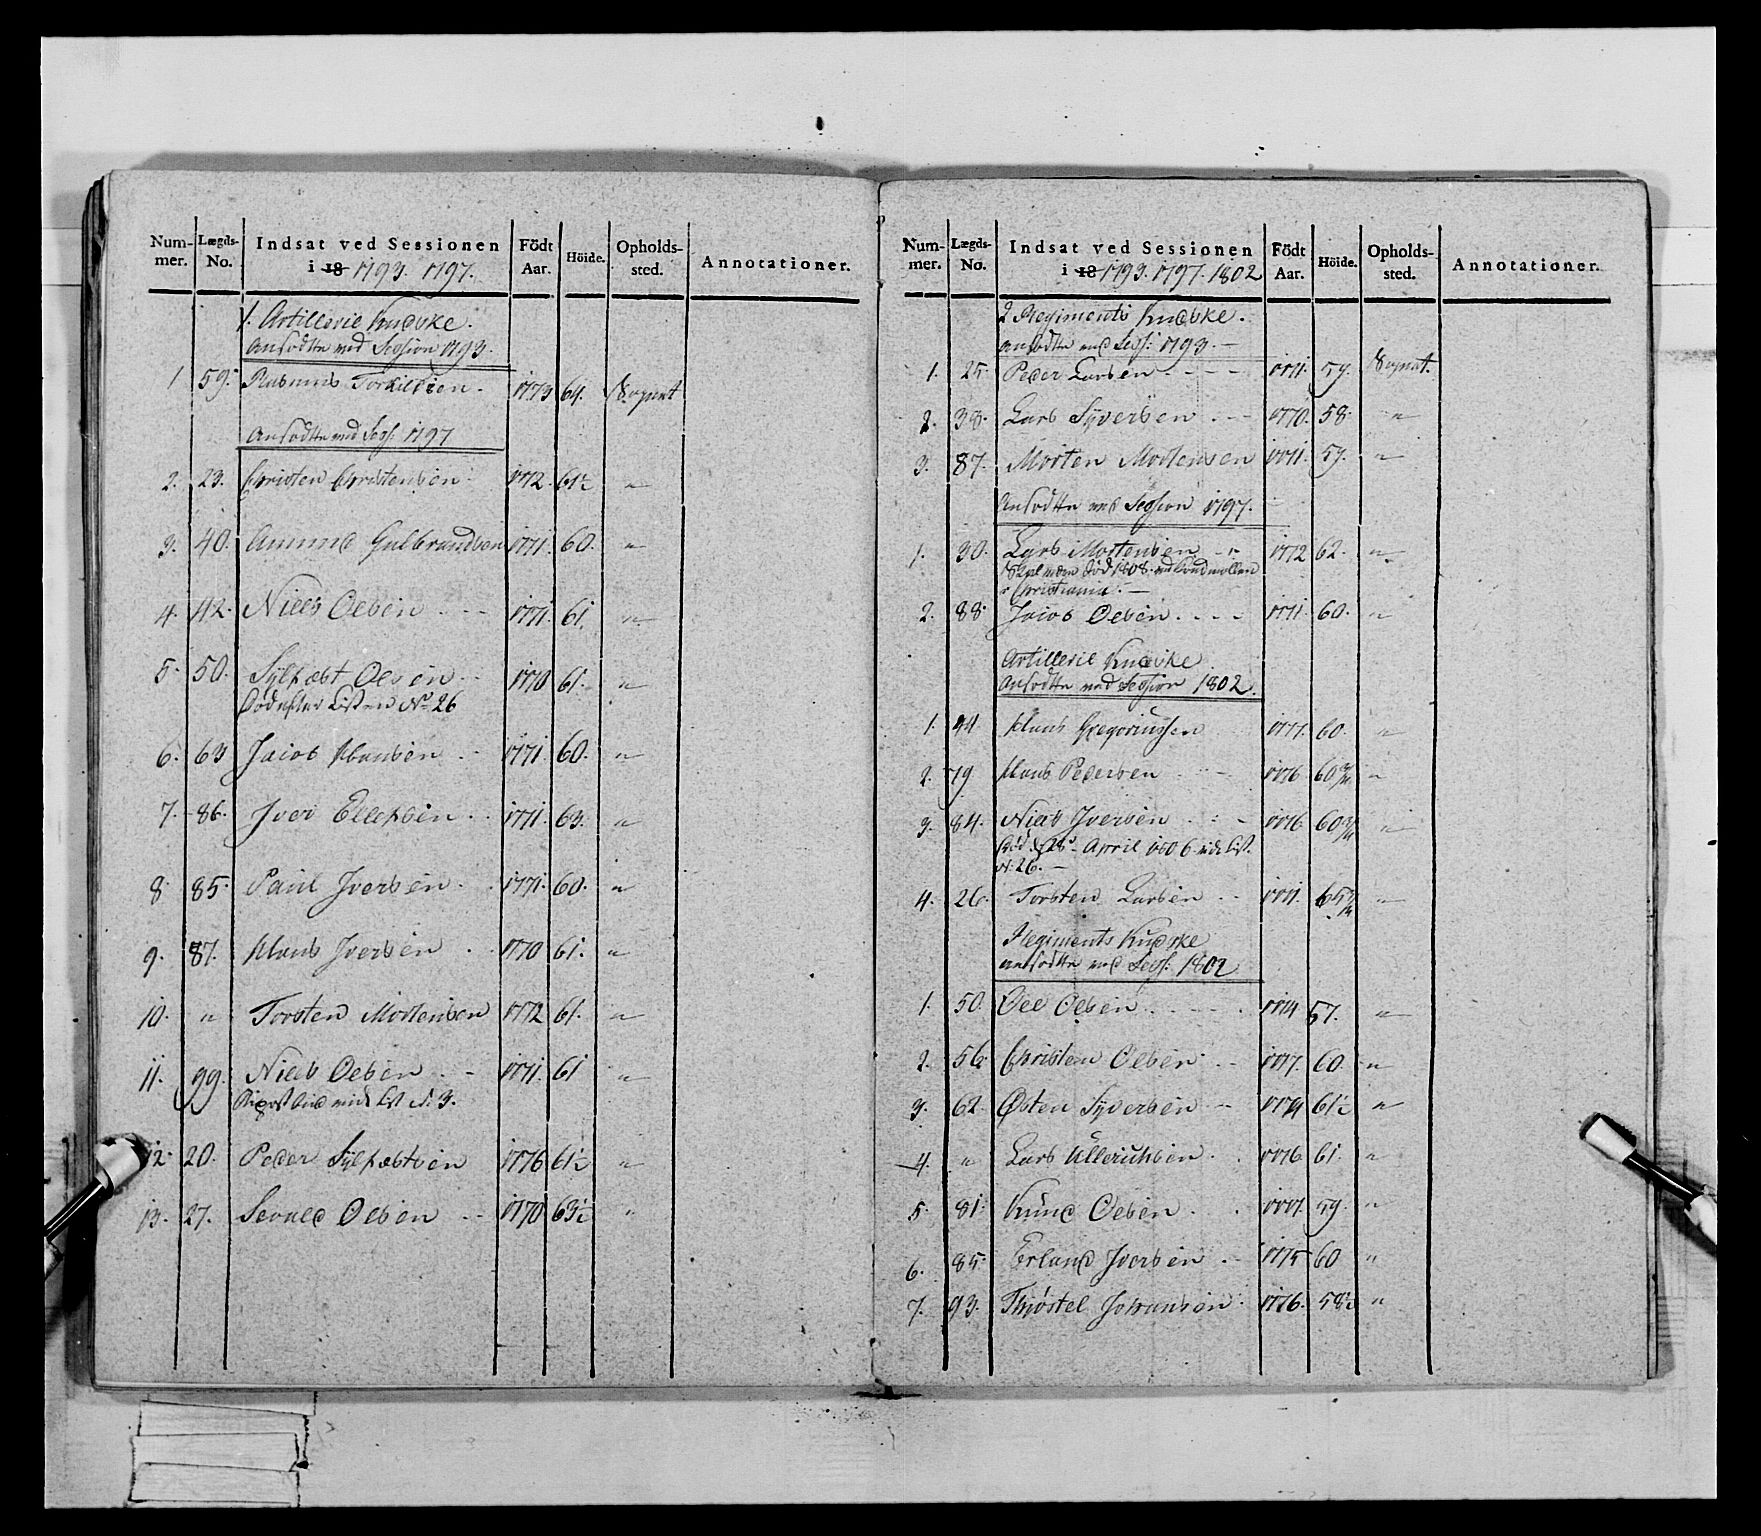 Num-mer. Lægds-No. Indsat ved Sessionen i 18 1793. 1797. Födt Aar. Höide. Opholds-sted. Annotationer.
1. Artillerie Kudske.
Ansadtte ved Session 1793.
1 59. Rasmus Torkildsen. 1773 64. Sognet
Ansadtte ved Sess: 1797
2. 23. Christen Christensen 1772. 61½ "
3. 40. Amund Gulbrandsen 1771. 60. "
4. 42. Niels Olsen 1771. 61. "
5. 50. Sylfæst Olsen 1770 61. "
Död efter Listen No 26
6. 63 Jacob Hansen 1771. 60. "
7. 86. Iver Ellefsen 1771. 63. "
8. 85. Paul Iversen 1771. 60. "
9. 87. Hans Iversen 1770 61. "
10. " Torsten Mortensen 1772 61. "
11. 99. Niels Olsen 1771. 61 "
vide List N. 3.
12. 20. Peder Sylfæstsen 1776 61½ "
13. 27. Sevald Olsen 1770 63½ "
Num-mer. Lægds-No. Indsat ved Sessionen i 18 1793. 1797. 1802 Födt Aar. Höide. Opholds-sted. Annotationer.
2 Regiments Kudske.
Ansadtte ved Sess: 1793.
1. 25. Peder Larsen 1771. 59. Sognet.
2. 38. Lars Syversen 1770. 58. "
3. 87. Morten Mortensen 1771. 59. "
Ansadtte ved Session 1797.
1. 30. Lars Mortensen 1772 62. "
død 1808 ved
i Christiania.
2. 88. Jacob Olsen 1771. 60. "
Artillerie Kudske
Ansadtte ved Session 1802.
1. 44 Hans Gregoriussen 1777. 60. "
2. 79 Hans Pedersen 1776 60¾ "
3. 84. Niels Iversen 1776 60¾ "
Död d. 28de April 1806 vide List.
N. 26.
4. 26. Torsten Larsen 1771. 65¾ "
Regiments Kudske
ansadtte ved Sess: 1802
1. 50. Ole Olsen 1774 57. "
2. 56 Christen Olsen 1777. 60. "
3. 62. Østen Syversen 1774 61½ "
4. " Lars Ullerichsen 1776 61. "
5. 81. Knud Olsen 1777. 59. "
6. 85. Erland Iversen 1775 60 "
7. 93. Thiøstel Johansen 1776. 58½ "